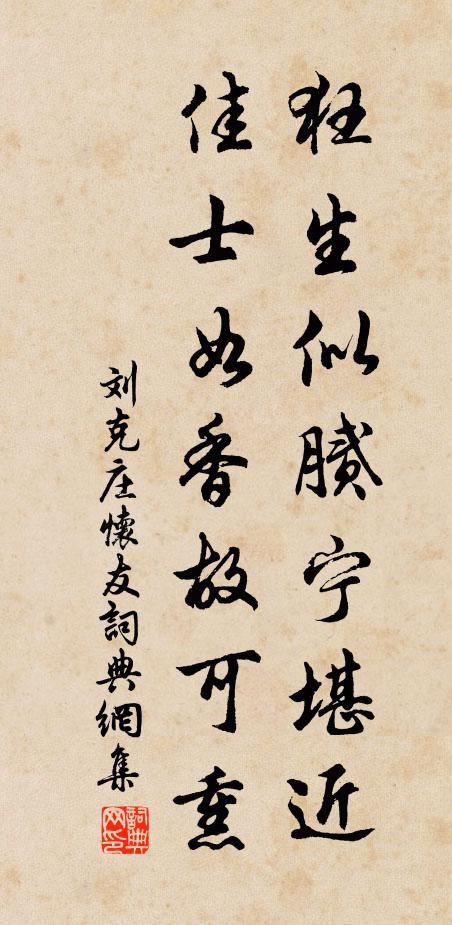 狂生似膩宁堪近
佳士如香故可熏
刘克庄懷友詞典網集
詞典网印